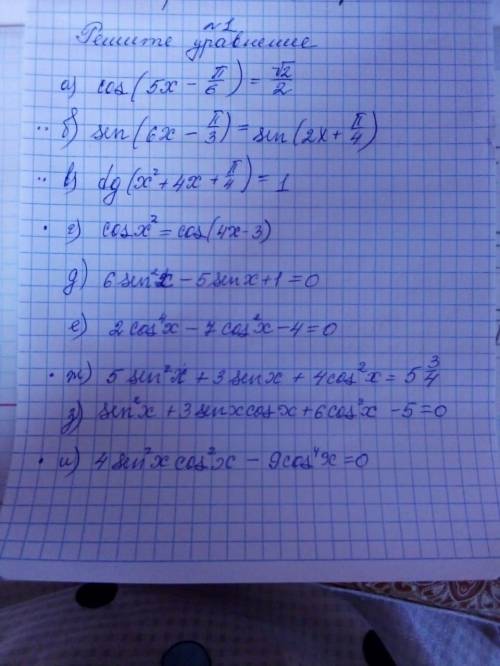 №1
Решите уравнение
а) cos(5x - π/6) = √2/2
б) sin(6x - π/3) = sin(2x + π/4)
в) tg(x² + 4x + π/4) = 1
г) cos x² = cos(4x - 3)
д) 6 sin²x - 5 sin x + 1 = 0
е) 2 cos⁴x - 7 cos²x - 4 = 0
ж) 5 sin²x + 3 sin x + 4 cos²x = 5 3/4
з) sin²x + 3 sin x cos x + 6 cos²x - 5 = 0
и) 4 sin²x cos²x - 9 cos⁴x = 0